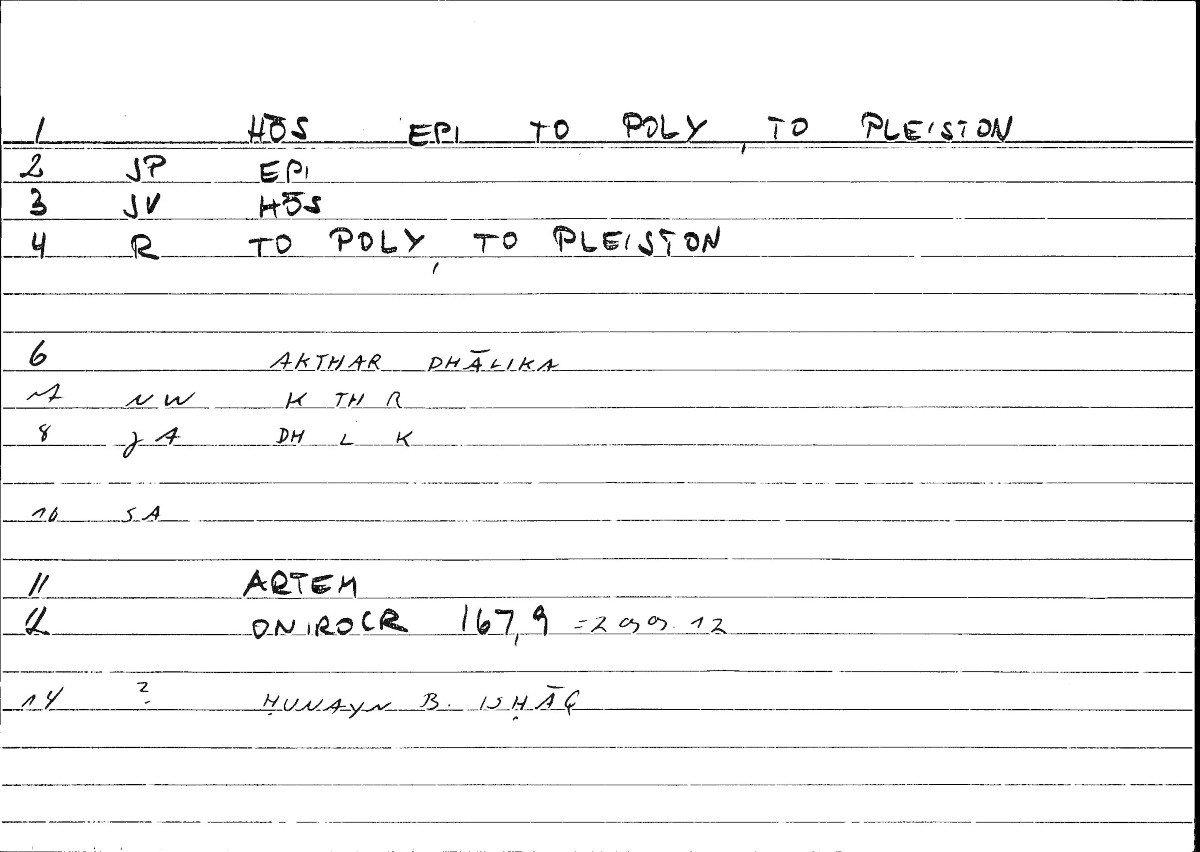 1 HŌS EPI TO POLY, TO PLEISTON
2 JP EPI
3 JV HŌS
4 R TO POLY, TO PLEISTON
6 AKTHAR DHĀLIKA
7 NW K TH R
8 JA DH L K
10 SA
11 ARTEM
12 ONIROCR 167,9 =299.12
14 ? ḤUNAYN B. ISḤĀQ